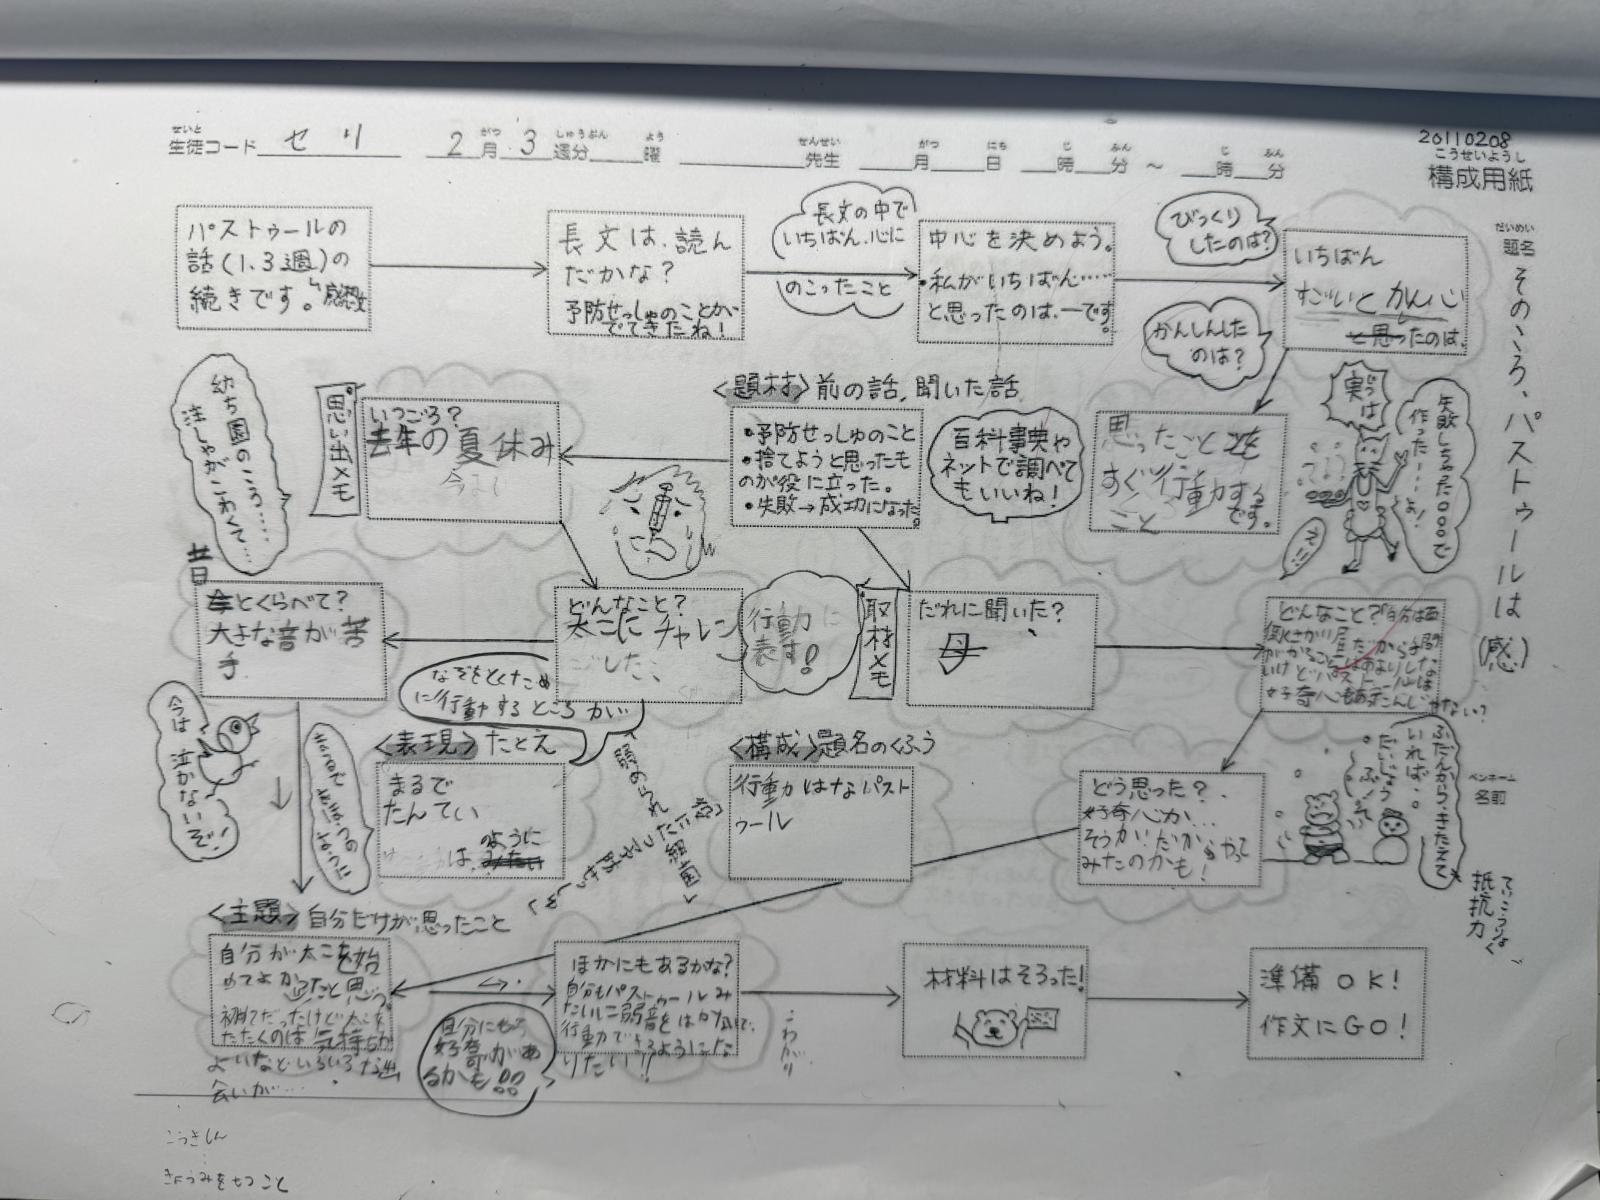 せいと がつ しゅうぶん よう せんせい がつ にち じ ふん じ ふん
生徒コード セリ 2月 3週分 曜 先生 月 日 時 分 ～ 時 分
20110208
こうせいようし
構成用紙
だいめい
題名
そのころ、パストゥールは(感)
ペンネーム
名前
パストゥールの
話(1.3週)の
続きです。
感想文
長文は、読ん
だかな?
予防せっしゅのことが
でてきたね!
長文の中で
いちばん、心に
のこったこと
中心を決めよう。
・私がいちばん……
と思ったのは、ーです。
びっくり
したのは?
かんしんした
のは?
いちばん
すごいと かん心
と思ったのは、
実は
失敗しちゃた○○○で
作った……よ!
え!!
思ったことを
すぐ行動する
こと です。
<題材>前の話、聞いた話
・予防せっしゅのこと
・捨てようと思ったも
のが役に立った。
・失敗→成功になった。
百科事典や
ネットで調べて
もいいね!
思い出メモ
いつごろ?
去年の夏休み
幼ち園のころ……
注しゃがこわくて…
どんなこと?
太こにチャレン
行動に
表す!
昔
今とくらべて?
大きな音が苦
手
今は
泣かないぞ!
取材メモ
だれに聞いた?
母
どんなこと?
どう思った?
好奇心か…
そうか!だからやって
みたのかも!
ふだんからきたえて
いれば、
だいじょう
ぶ!
ていこうりょく
抵抗力
なぞをとくため
に行動するところが
<表現>たとえ
まるで
たんてい
は、みたい
のように
<構成>題名のくふう
行動力はなパスト
ゥール
<主題>自分だけが思ったこと
自分が太こを始
めてよかったと思う。
初めてだったけど太こを
たたくのは気持ちが
よいなどいろいろな出
会いが…
自分にも
好奇があ
るかも!!
ほかにもあるかな?
自分もパストゥールみ
たいに弱音をはかないで、
行動できるようにな
りたい!!
こわがり
材料はそろった!
準備OK!
作文にGO!
こうきしん
きょうみをもつこと